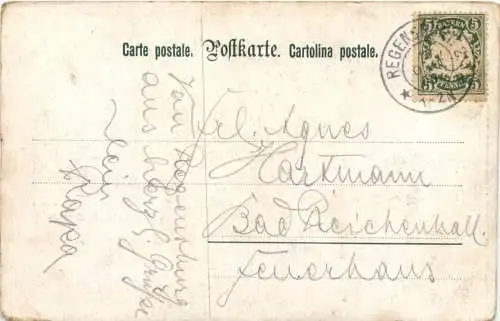 Carte postale. Postkarte. Cartolina postale.
BAYERN
5 5
PFENNIG
REGEN
Frl. Agnes
Hartmann
Bad Reichenhall.
Feuerhaus
Von Regensburg
aus herzl. Grüße
Dein
Papa